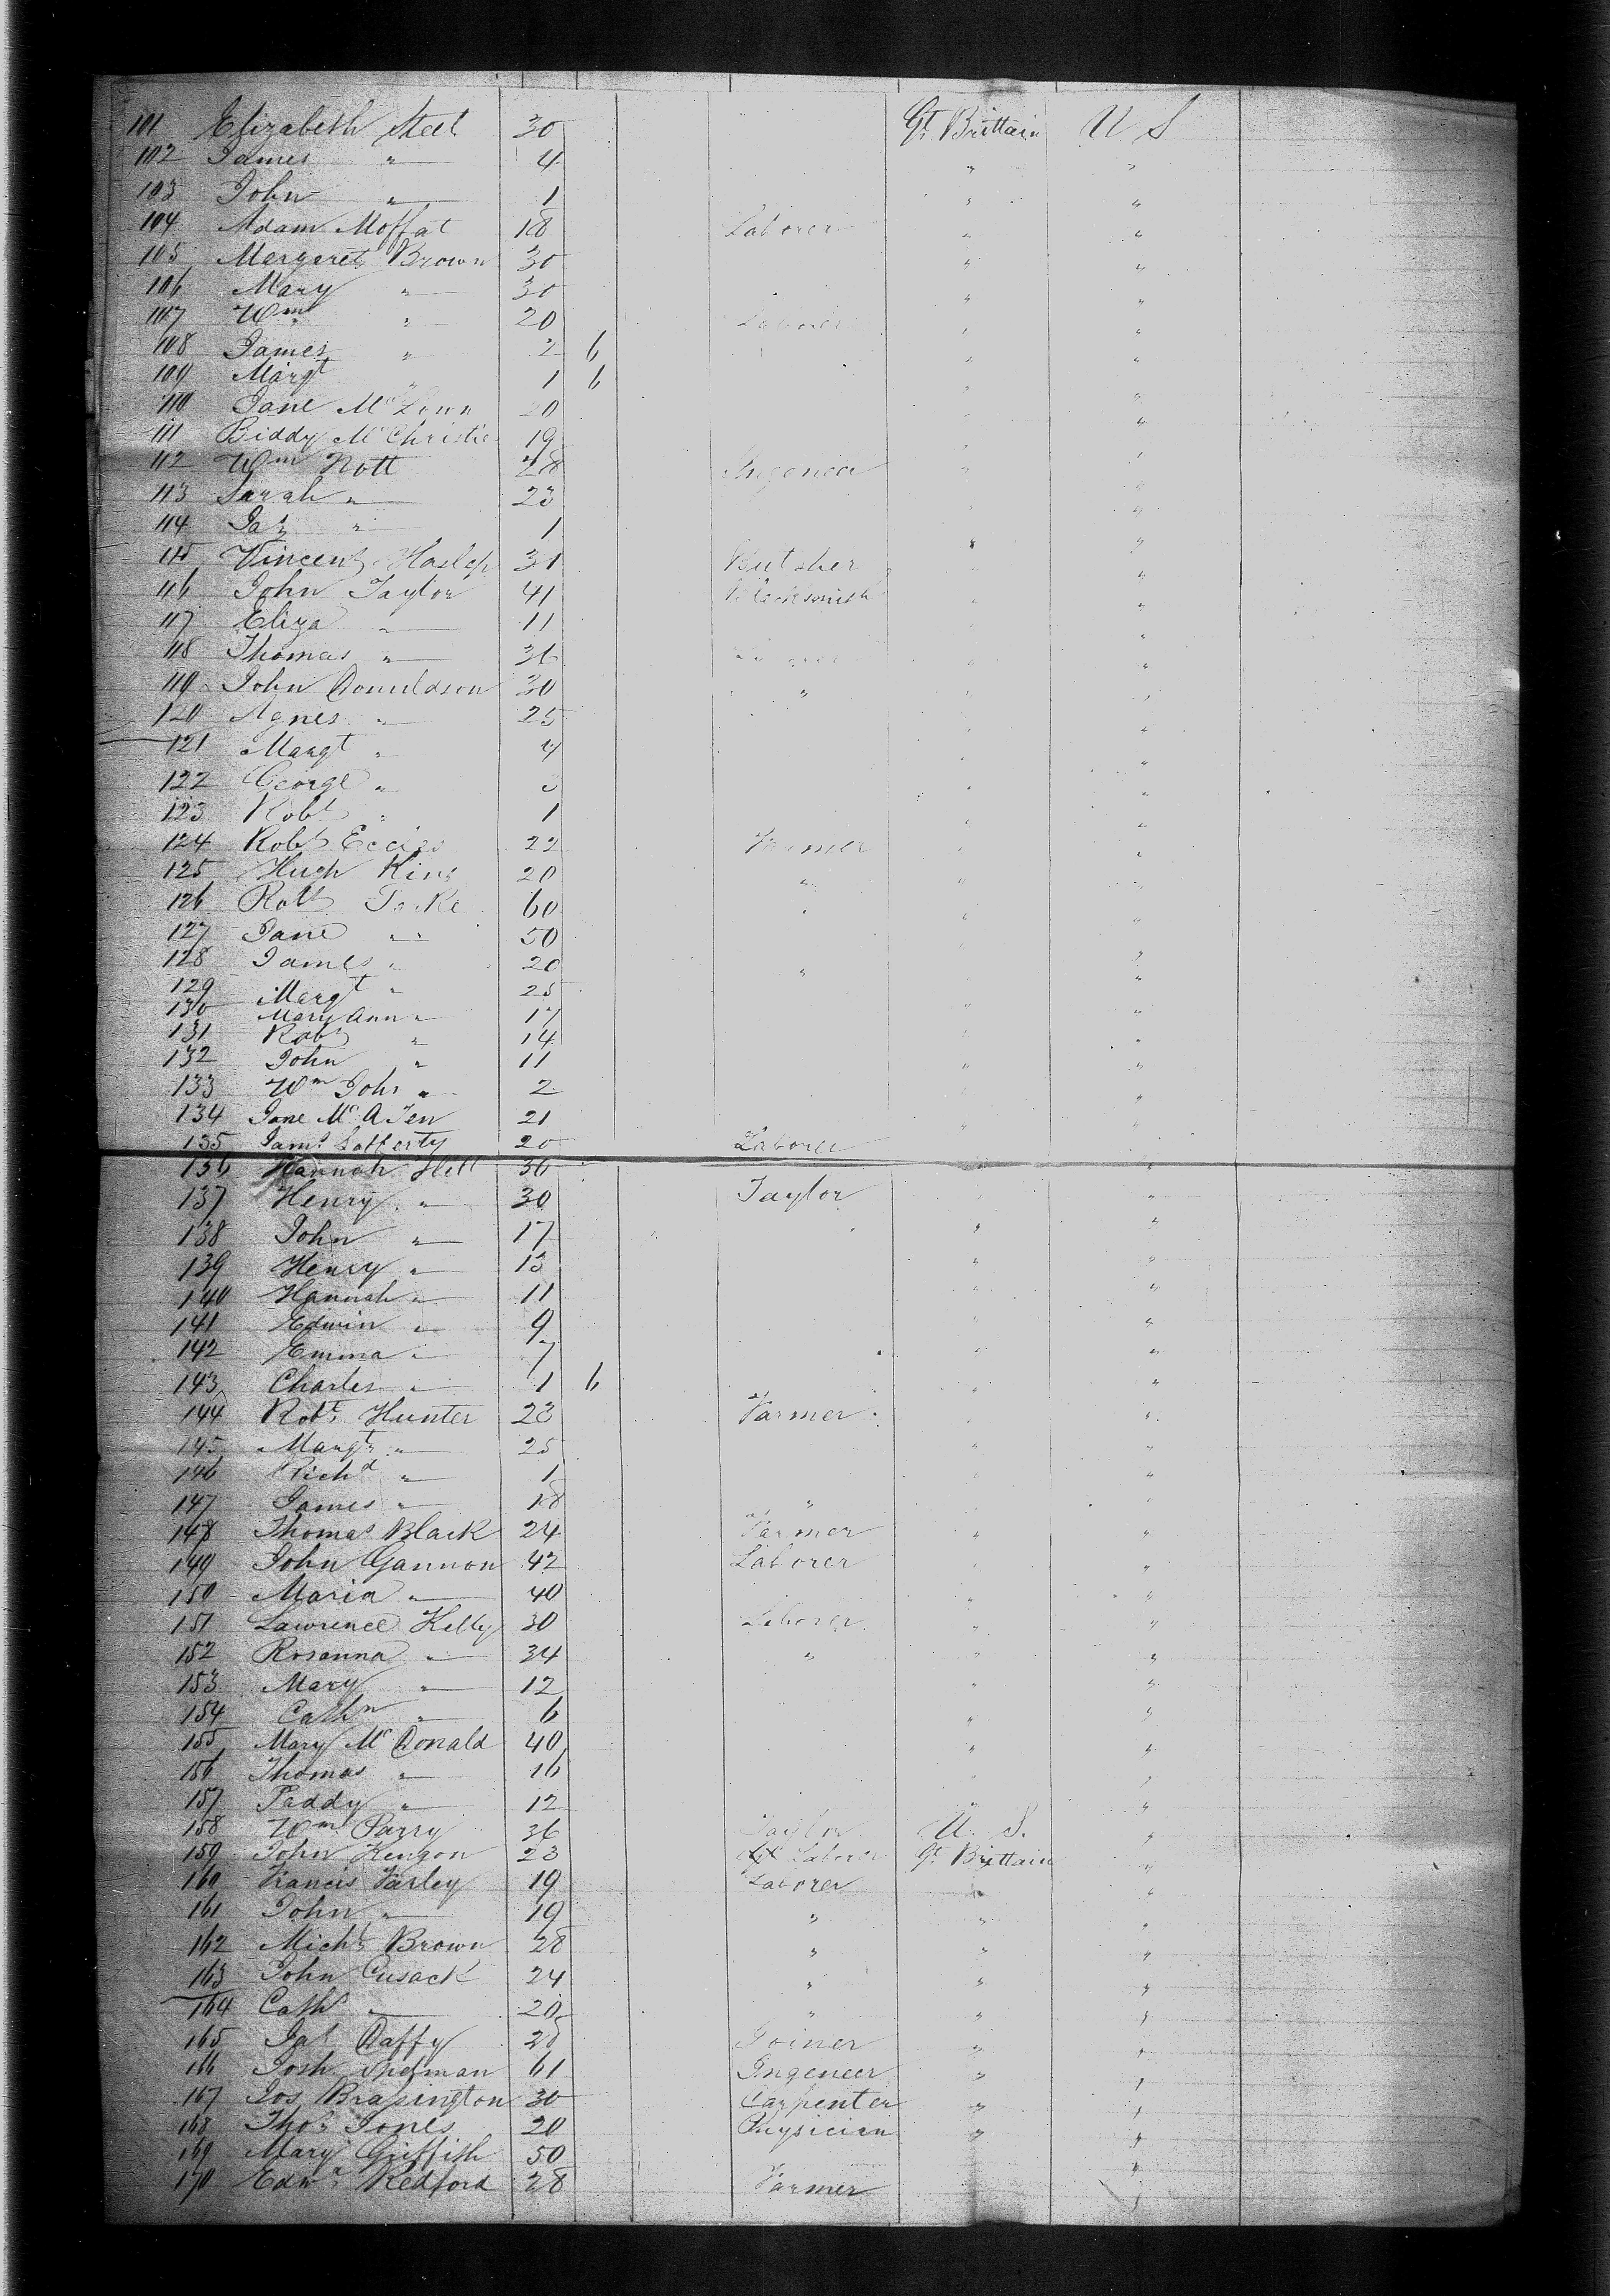 101 Elizabeth Steel 30 Gt Brittain U S
102 James " 4 " "
103 John " 1 " "
104 Adam Moffat 18 Laborer " "
105 Margaret Brown 30 " "
106 Mary " 30 " "
107 Wm " 20 Laborer " "
108 James " 2 6 " "
109 Margt " 1 6 " "
110 Jane Mc 20 " "
111 Biddy McChristie 19 " "
112 Wm Nott 28 Ingeneer " "
113 Sarah " 23 " "
114 Jas " 1 " "
115 Vincent Haslep 31 Butcher " "
116 John Taylor 41 Blacksmith " "
117 Eliza " 11 "
118 Thomas " 36 " "
119 John Donaldson 30 " " "
120 Agnes " 25 " "
121 Margt " 4 " "
122 George " 3 " "
123 Robt " 1 " "
124 Robt Eccles 22 Farmer " "
125 Hugh King 20 " " "
126 Robt 60 " " "
127 Jane " 50 "
128 James " 20 " "
129 Margt " 25 "
130 Mary Ann " 17 " "
131 Robt " 14 " "
132 John " 11 " "
133 Wm John " 2 "
134 Jane Mc 21 " "
135 Jams Lafferty 20 Laborer
136 Hannah Hill 36 " "
137 Henry " 30 Taylor "
138 John " 17 " "
139 Henry " 13 " "
140 Hannah " 11 " "
141 Edwin " 9 " "
142 Emma " 7 " "
143 Charles " 1 6 " "
144 Robt Hunter 23 Farmer " "
145 Margt " 25 " "
146 Richd " 1 "
147 James " 18 " "
148 Thomas Black 24 Farmer " "
149 John Gannon 42 Laborer " "
150 Maria " 40 " "
151 Lawrence Kelly 30 Laborer " "
152 Rosanna " 34 " " "
153 Mary " 12 " "
154 Cathn " 6 " "
155 Mary McDonald 40 " "
156 Thomas " 16 " "
157 Paddy " 12 " "
158 Wm Parry 36 Taylor U. S. "
159 John Kenyon 23 Laborer Gt Brittain "
160 Francis Farley 19 Laborer " "
161 John " 19 " " "
162 Michl Brown 28 " " "
163 John Cusack 24 " " "
164 Cath " 20 " " "
165 Pat Daffy 28 Joiner " "
166 Josh 61 Ingeneer " "
167 Jos Brasington 30 Carpenter " "
168 Thos Jones 20 Physician " "
169 Mary Griffith 50 "
170 Edwd Redford 28 Farmer "